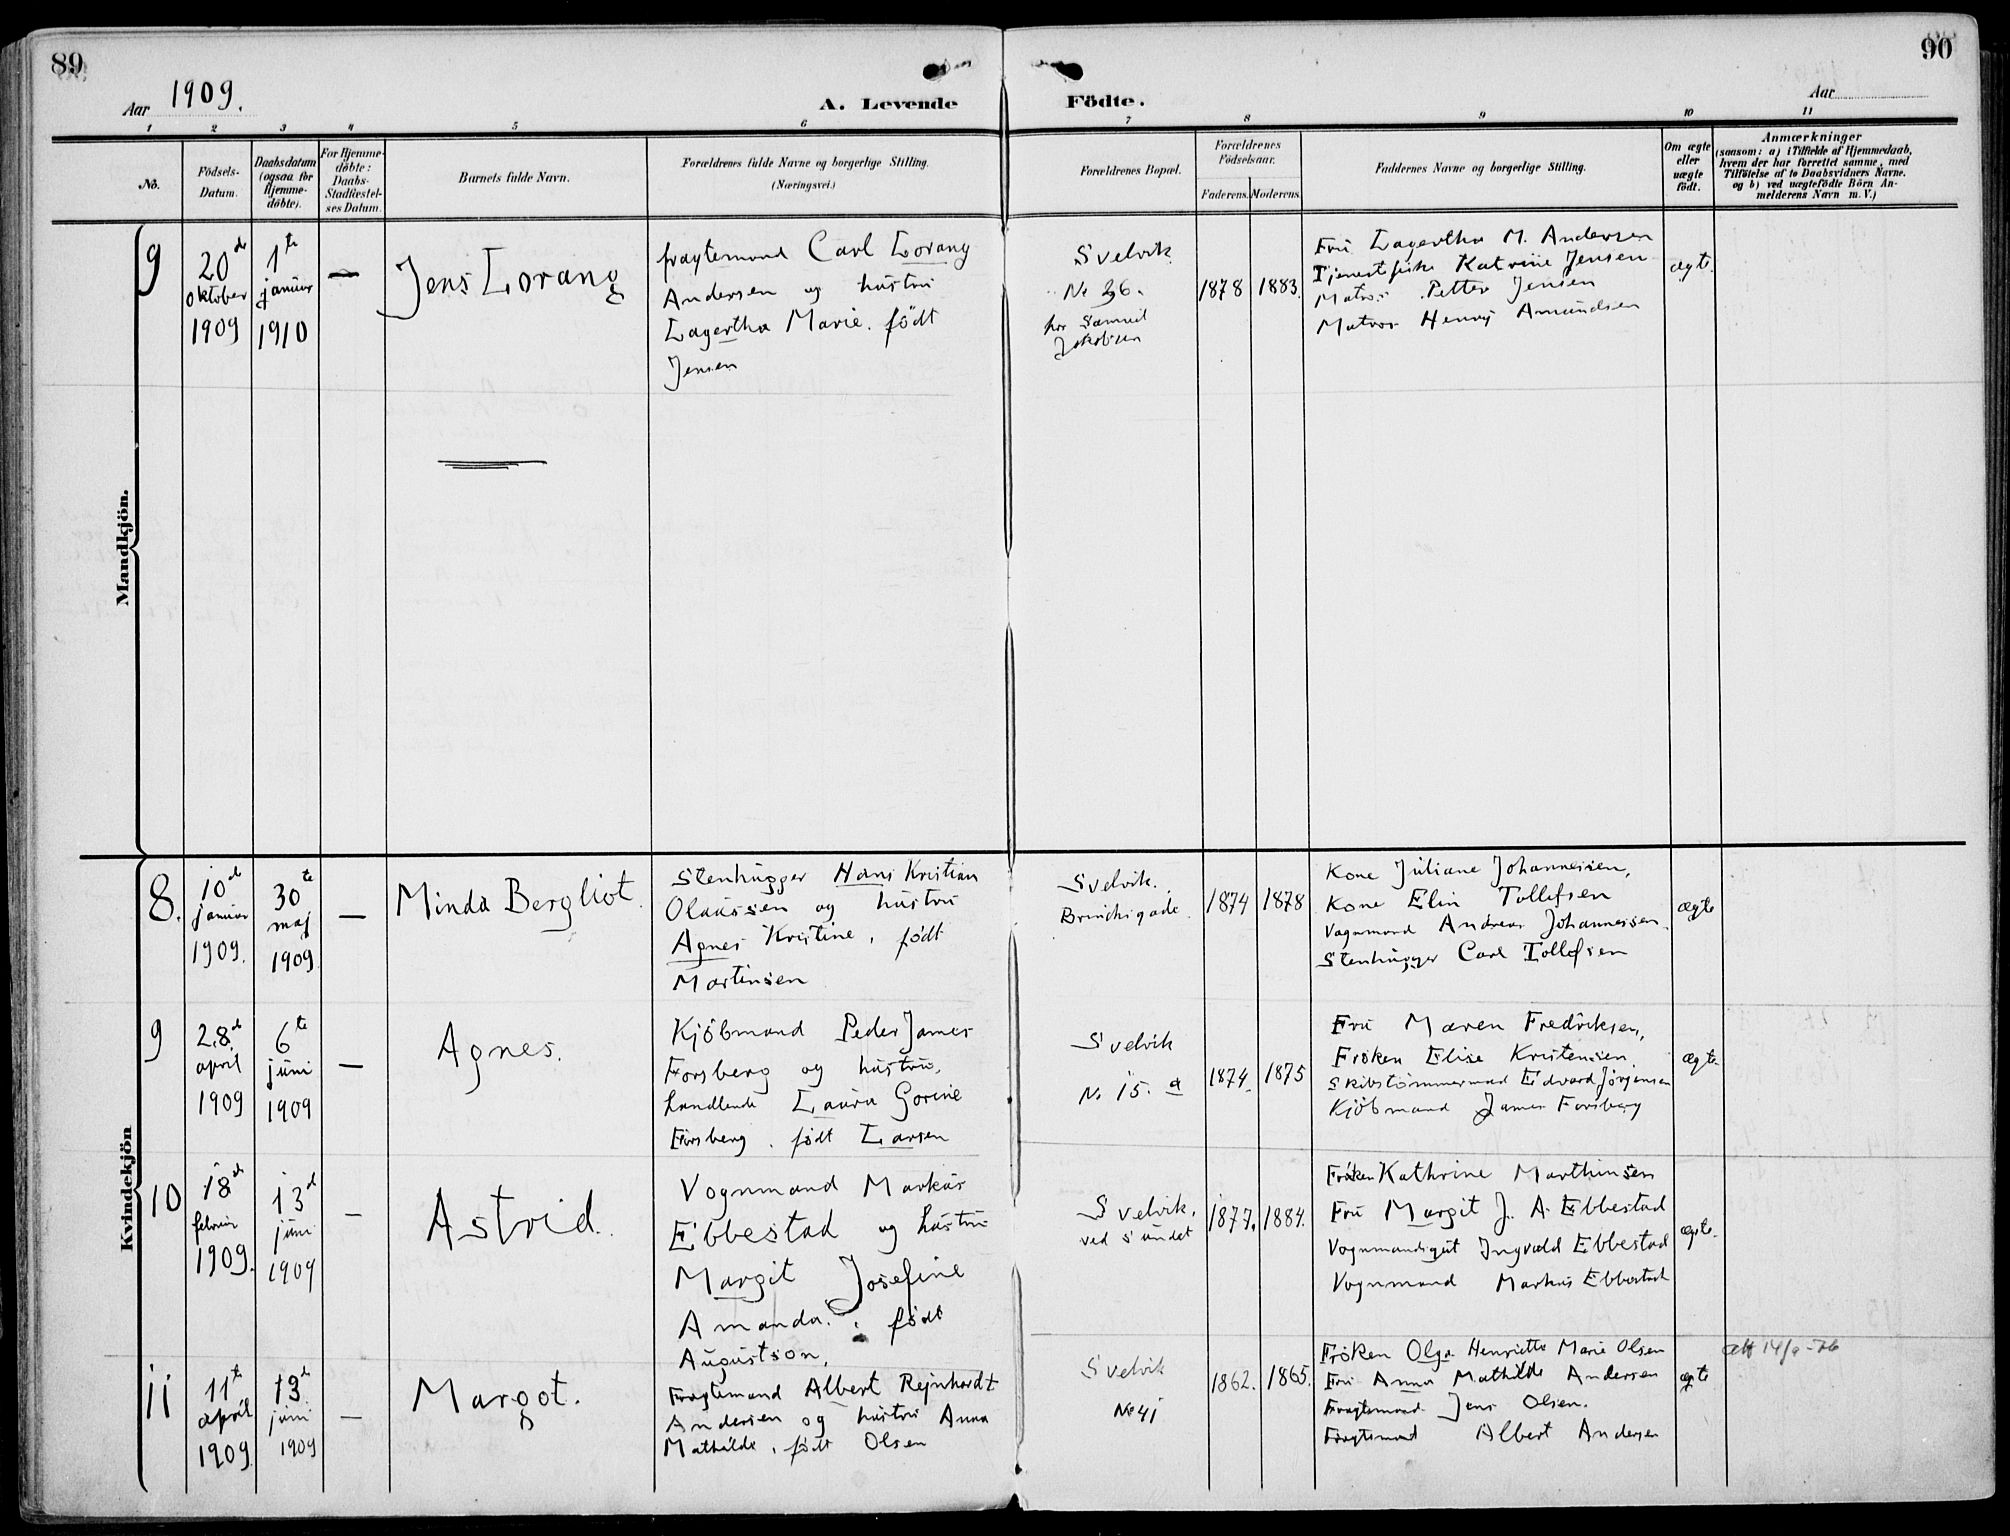 89
90
Aar 1909.
A. Levende Födte.
Aar
1 2 3 4 5 6 7 8 9 10 11
No.
Födsels-
Datum.
Daabsdatum
(ogsaa for
Hjemme-
döbte).
For Hjemme-
döbte:
Daabs-
Stadfæstel-
ses Datum.
Barnets fulde Navn.
Forældrenes fulde Navne og borgerlige Stilling.
(Næringsvei.)
Forældrenes Bopæl.
Forældrenes
Födselsaar.
Faderens. Moderens.
Faddernes Navne og borgerlige Stilling.
Om ægte
eller
uægte
födt.
Anmærkninger
(saasom: a) i Tilfælde af Hjemmedaab,
hvem der har forrettet samme, med
Tilföielse af to Daabsvidners Navne.
og b) ved uægtefödte Börn An-
melderens Navn m. V.)
Mandkjön.
9
20de
oktober
1909
1te
januar
1910
—
Jens Lorang
fragtemand Carl Lorang
Andersen og hustru
Lagertha Marie. født
Jensen
Svelvik
No 36.
hos Samuel
Jakobsen
1878
1883.
Fru Lagertha M. Andersen
Tjenestpike Katrine Jensen
Matros Petter Jensen
Matros Henry Amundsen
ægte.
Kvindekjön
8.
10de
januar
1909.
30te
maj
1909
—
Minda Bergliot.
Stenhugger Hans Kristian
Olaussen og hustru
Agnes Kristine, født
Martinsen
Svelvik.
Brinchsgade
1874
1878
Kone Juliane Johannessen,
Kone Elin Tollefsen
Vognmand Andreas Johannessen.
Stenhugger Carl Tollefsen
ægte
9
28de
april
1909
6te
juni
1909
—
Agnes.
Kjøbmand Peder James
Forsberg og hustru,
handlende Laura Gorine
Forsberg, født Larsen
Svelvik
No 15. a
1874
1875
Fru Maren Fredriksen,
Frøken Elise Kristensen
Skibstømmermand Edvard Jørgensen
Kjøbmand James Forsberg
ægte
10
18de
februar
1909.
13de
juni
1909
—
Astrid.
Vognmand Markus
Ebbestad og hustru
Margit Josefine
Amanda, født
Augustson,
Svelvik,
ved Sundet
1877.
1884.
Frøken Kathrine Marthinsen
Fru Margit J. A. Ebbestad
Vognmandsgut Ingvald Ebbestad
Vognmand Markus Ebbestad
ægte.
11
11te
april
1909
13de
juni
1909
—
Margot.
Fragtemand Albert Rejnhardt
Andersen og hustru Anna
Mathilde, født Olsen
Svelvik
No 41
1862.
1865.
Frøken Olga Henriette Marie Olsen
Fru Anna Mathilde Andersen
Fragtemand Jens Olsen.
Fragtemand Albert Andersen
ægte